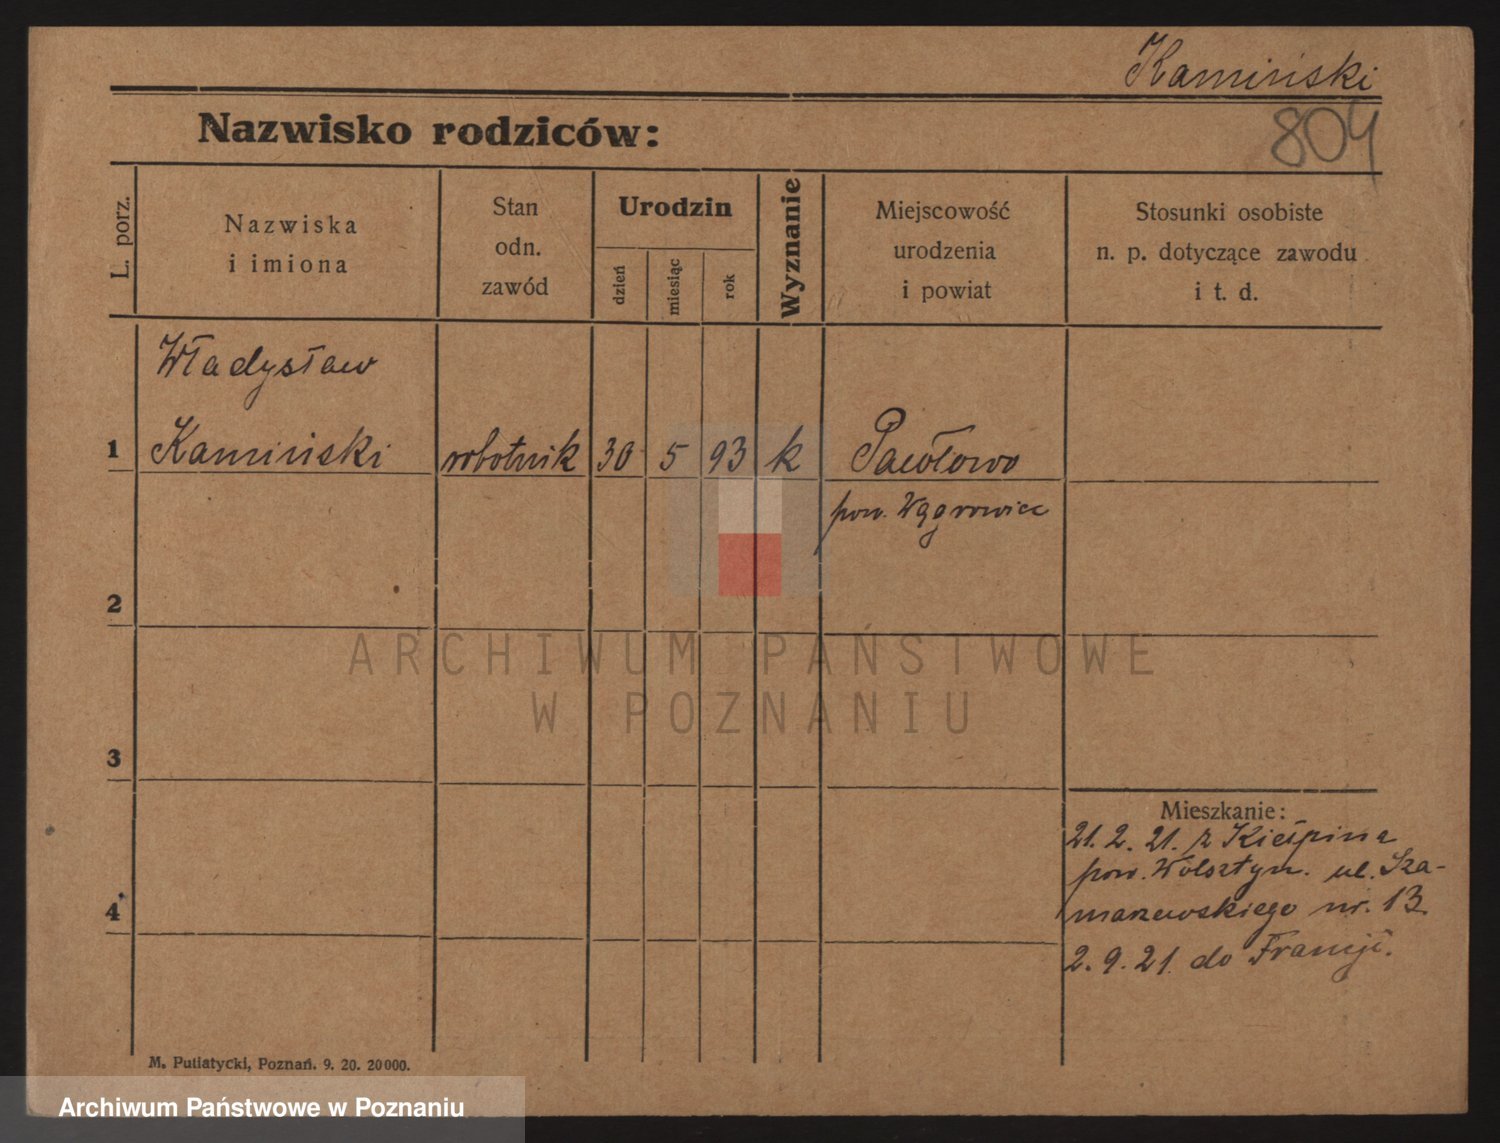 Kamiński
Nazwisko rodziców:
804
L. porz.
Nazwiska
i imiona
Stan
odn.
zawód
Urodzin
dzień
miesiąc
rok
Wyznanie
Miejscowość
urodzenia
i powiat
Stosunki osobiste
n. p. dotyczące zawodu
i t. d.
Władysław
1 Kamiński robotnik 30 5 93 k Pawłowo
pow. Wągrowiec
2
3
4
Mieszkanie:
21. 2. 21. z Kiełpina
pow. Wolsztyn. ul. Sza-
marzewskiego nr. 13
2. 9. 21. do Francji.
M. Putiatycki, Poznań. 9. 20. 20000.
ARCHIWUM PAŃSTWOWE
W POZNANIU
Archiwum Państwowe w Poznaniu